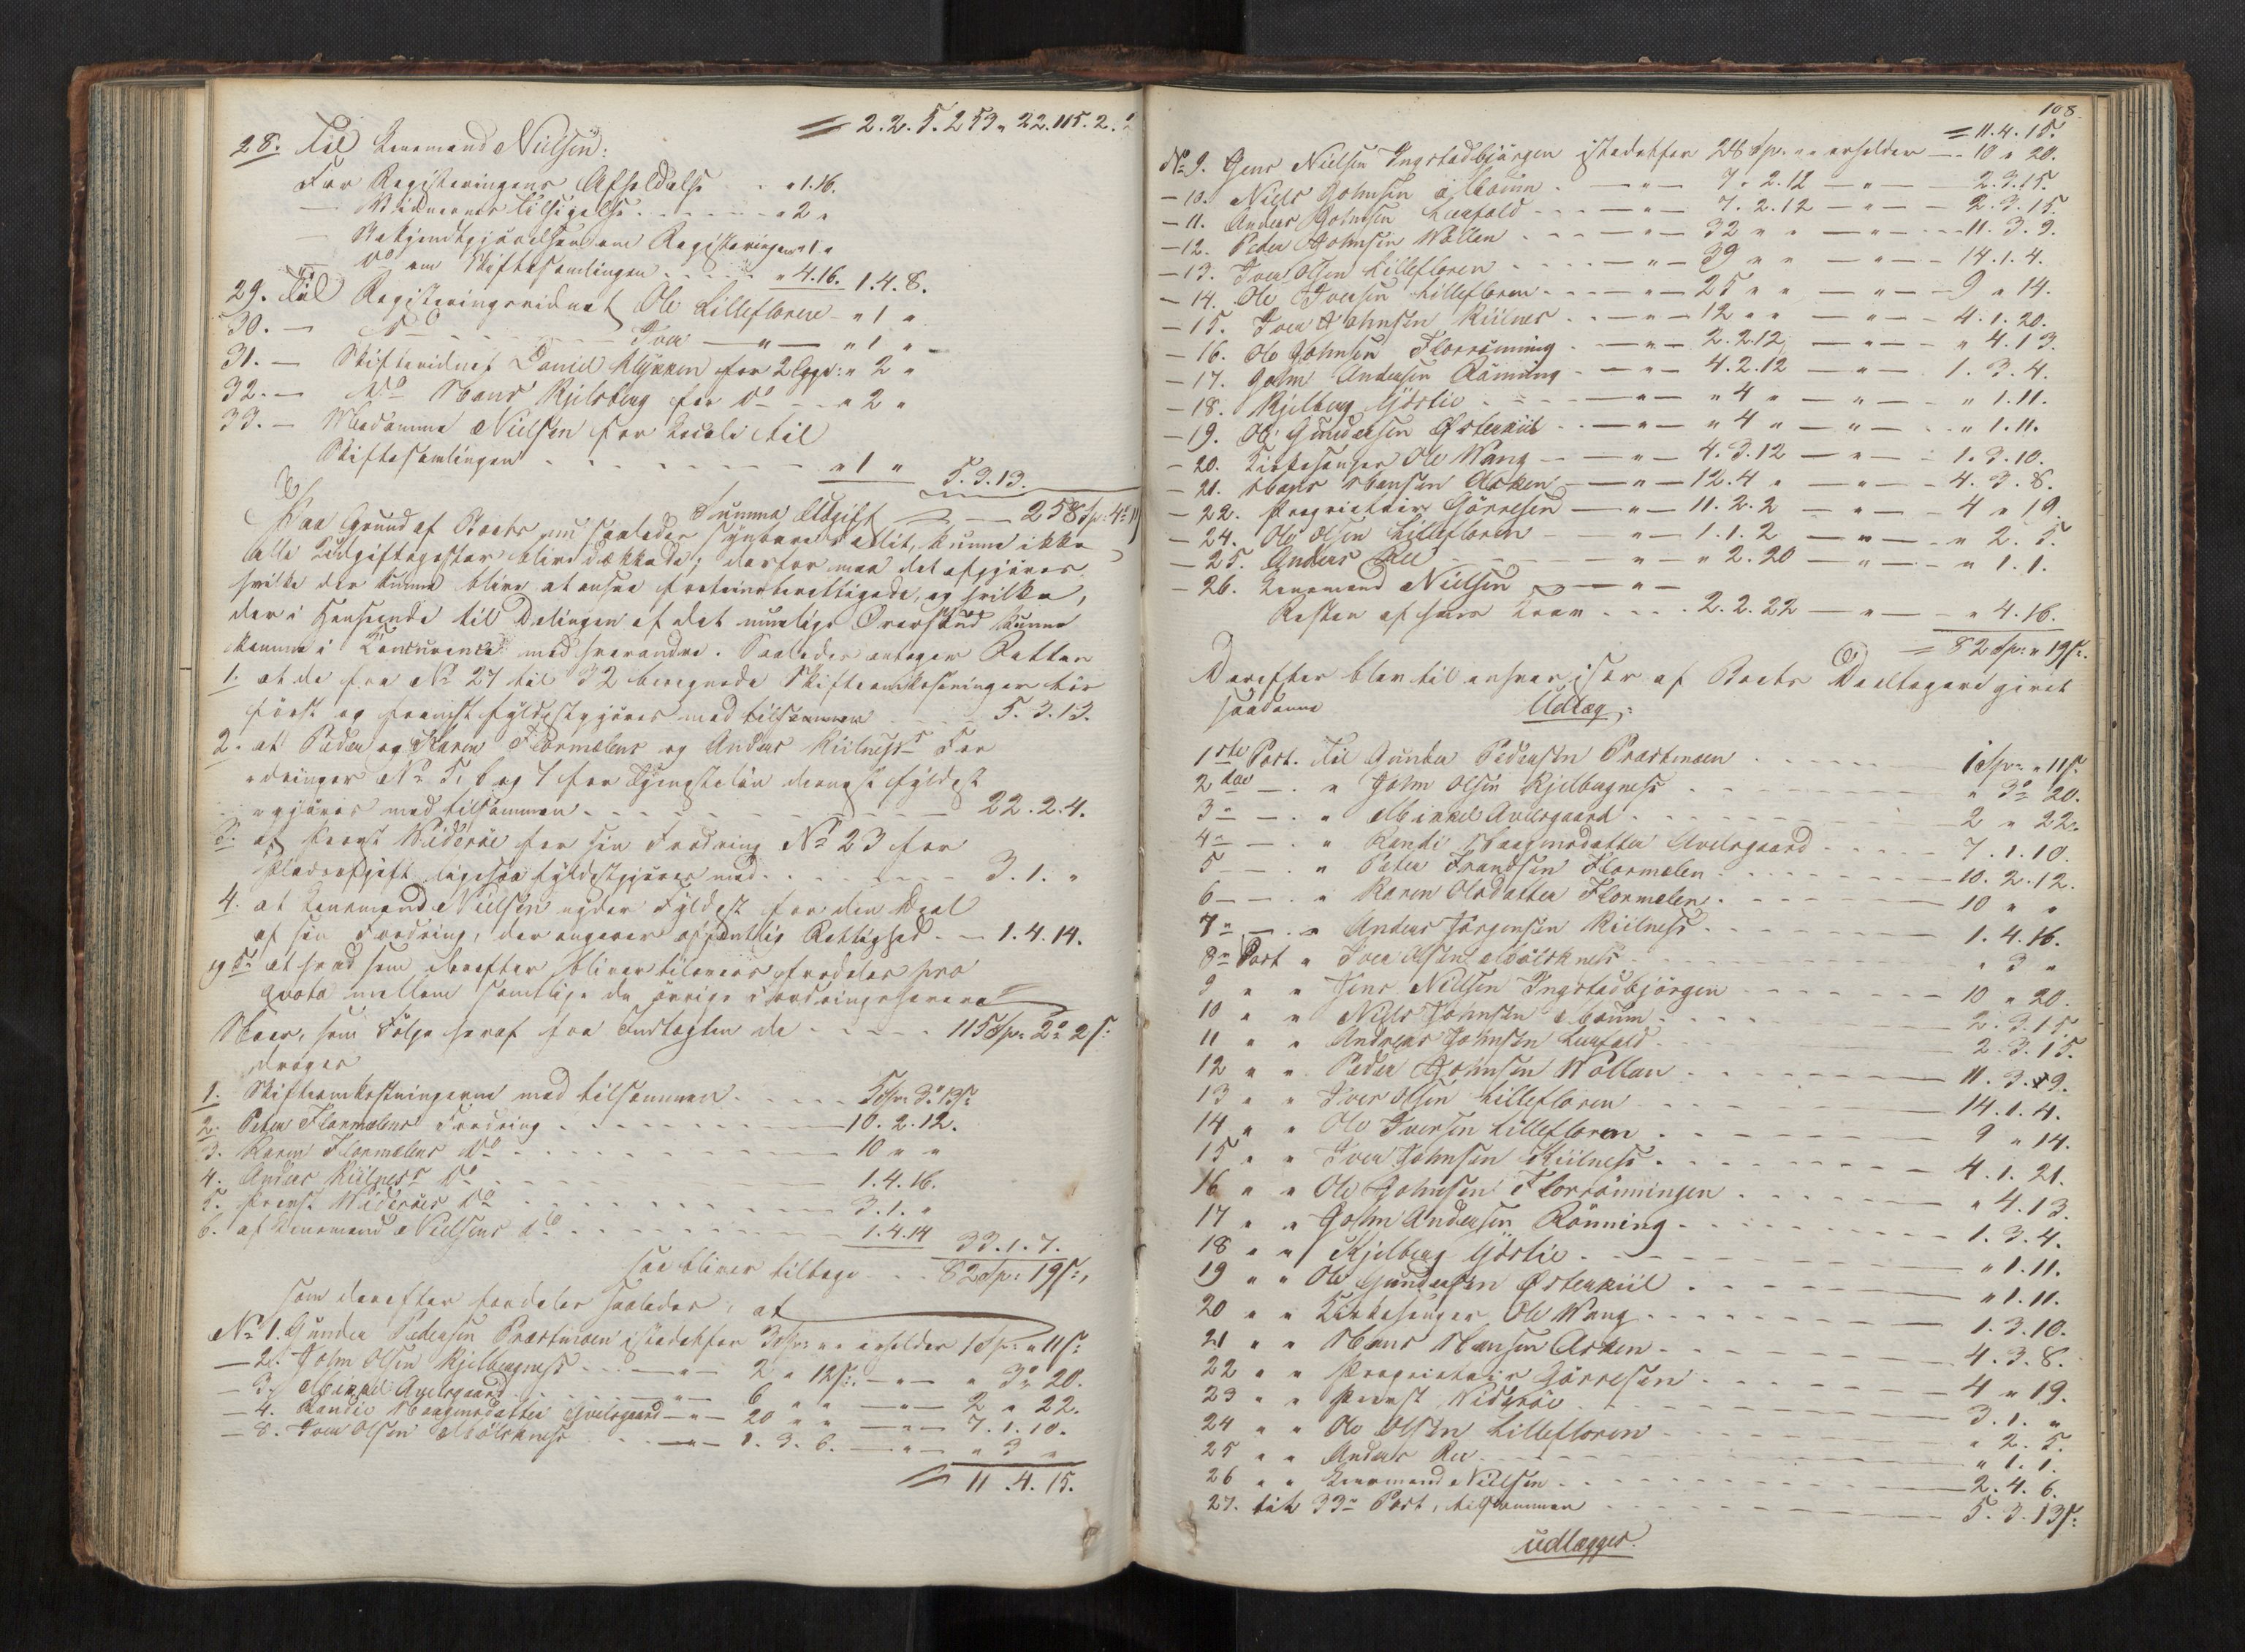 = 2.2.5. 253 " 22. 115.2.2
28. Til Lensmand Nielsen:
For Registeringens Afholdelse . . " 1.16.
— Vidnernes Tilsigelse . . . . . " 2 "
— Bekjendtgjørelsen om Registeringen " 1 "
— Do om Skiftesamlingen . . . . " 4.16. 1.4.8.
29. Til Registeringsvidnet Ole Lillefloren - " 1 "
30. — Do - - - - Iver — " — " 1 "
31. — Skiftevidnet Daniel Klykken for 2 Gge: " 2 "
32. — Do Hans Kjelsberg for Do - - " 2 "
33. — Madamme Nielsen for Locale til
Skiftesamlingen - - - - - - " 1 " 5.3.13.
Summa Udgift = — 258 Sp: 4 " 11
Paa Grund af Boets nu saaledes synbare Deficit, kunne ikke
alle Udgiftsposter blive dækkede; derfor maa det afgjøres,
hvilke der kunne blive at ansee fortrinsberettigede, og hvilke,
der i Henseende til Delingen af det muelige Overskud kunne
komme i Concurence med hverandre. Saaledes antager Retten
1. at de fra No 27 til 32 beregnede Skifteomkostninger bør
først og fremst fyldestgjøres med tilsammen - - - 5.3.13.
2. at Peder og Karen Flormælens og Anders Kiilness's For
dringer No 5, 6 og 7 for Tjenesteløn dernæst fyldest
gjøres med tilsammen - - - - - - 22.2.4.
3. at Provst Widerøe for sin Fordring No 23 for
Pladsafgift ligesaa fyldestgjøres med - - - - - 3.1. "
4. at Lensmand Nielsen nyder Fyldest for den Deel
af sin Fordring, der angaaer offentlig Rettighed - - 1.4.14.
og 5. at hvad som derefter bliver tilovers fordeles pro
qvota mellem samtlige de øvrige Fordringshavere
Naar, som Følge heraf fra Indtægten de - - - - 115 Sp: 2 " 2 s:
drages
1. Skifteomkostningerne med tilsammen - - - - 5 Sp: 3 " 13 s:
2. Peter Flormælens Fordring - - - - - - 10.2.12.
3. Karen Flormælens Do - - - - - - 10 " "
4. Anders Kiilness's Do - - - - - - 1.4.16.
5. Provst Widerøes Do - - - - - - 3.1. "
6. af Lensmand Nielsens Do - - - - - - 1.4.14 33.1.7.
saa bliver tilbage - - 82 Sp: 19 s:,
som derefter fordeles saaledes, at
No 1. Gunder Pedersen Præstmoen istedetfor 3 Sp: " " erholder 1 Sp: " 11 s:
— 2. John Olsen Kjelbergness - - — " — 2 " 12 s: — " — " 3 " 20.
— 3. Mikael Avelsgaard - - - — " — 6 " " — " — 2 " 22.
— 4. Randie Haagensdatter Avelsgaard — " — 20 " " — " — 7.1.10.
— 8. Iver Olsen Mølskness - - — " — 1.3.6. — " — " 3 "
= 11.4.15.
108.
= 11.4.15.
No 9. Jens Nielsen Ingstadbjørgen istedetfor 28 Sp. " " erholder — 10 " 20.
— 10. Niels Johnsen Moum . — " — 7.2.12 — " — 2.3.15.
— 11. Anders Johnsen Luefald - - — " — 7.2.12 — " — 2.3.15.
— 12. Peder Johnsen Wollen - - — " — 32 " " — " — 11.3.9.
— 13. Iver Olsen Lillefloren - - - — " — 39 " " — " — 14.1.4.
— 14. Ole Iversen Lillefloren - - — " — 25 " " — " — 9 " 14.
— 15. Iver Johnsen Kiilnes - - — " — 12 " " — " — 4.1.20.
— 16. Ole Johnsen Florrønning - — " — 2.2.12 — " — " 4.13.
— 17. John Andersen Rønning - — " — 4.2.12 — " — 1.3.4.
— 18. Kjelberg Gjøslie - - - — " — " 4 " — " — " 1.11.
— 19. Ole Gundersen Østerkiil - — " — " 4 " — " — " 1.11.
— 20. Kirkesanger Ole Wang - — " — 4.3.12 — " — 1.3.10.
— 21. Hans Hansen Asken - — " — 12.4 " — " — 4.3.8.
— 22. Proprietair Gørresen — " — 11.2.2 — " — 4 " 19.
— 24. Ole Olsen Lillefloren - — " — 1.1.2 — " — " 2.5.
— 25. Anders Ree - - - — " — " 2.20 — " — " 1.1.
— 26. Lensmand Nielsen — " —
Resten af hans Krav - - - 2.2.22 — " — " 4.16.
= 82 Sp: " 19 s:.
Derefter blev til enhver især af Boets Deeltagere givet
saadanne Udlæg:
1ste Post. Til Gunder Pedersen Præstmoen - - - - 1 Sp: " 11 s:
2den — . " John Olsen Kjelbergness - - - - " 3 " 20.
3 — . " Mikael Avelsgaard - - - - 2 " 22.
4 — . " Randi Haagensdatter Avelsgaard - - - - 7.1.10.
5 — . " Peter Frandsen Flormælen - - - - 10.2.12.
6 — . " Karen Olsdatter Flormælen - - - - 10 " "
7 — . " Anders Jørgensen Kiilness - - - - 1.4.16.
8 Post " Iver Olsen Mølskness - - - - " 3 "
9 " " Jens Nielsen Ingstadbjörgen - - - - 10 " 20.
10 " " Niels Johnsen Moum - - - - 2.3.15.
11 " " Andreas Johnsen Luefald - - - - 2.3.15.
12 " " Peder Johnsen Wollan - - - - 11.3.9.
13 " " Iver Olsen Lillefloren - - - - 14.1.4.
14 " " Ole Iversen Lillefloren - - - - 9 " 14.
15 " " Iver Johnsen Kiilness - - - - 4.1.21.
16 " " Ole Johnsen Florrønningen - - - - " 4.13.
17 " " John Andersen Rønning - - - - 1.3.4.
18 " " Kjelberg Gjøslie - - - - " 1.11.
19 " " Ole Gundersen Østerkiil - - - - " 1.11.
20 " " Kirkesanger Ole Wang - - - - 1.3.10.
21 " " Hans Hansen Asken - - - - 4.3.8.
22 " " Proprietair Gørresen - - - - 4 " 19.
23 " " Provst Widerøe - - - - 3.1. "
24 " " Ole Olsen Lillefloren - - - - " 2.5.
25 " " Anders Ree - - - - " 1.1.
26 " " Lensmand Nielsen - - - - 2.4.6.
27. til 33 Post, tilsammen - - - - 5.3.13 s:
udlægges.